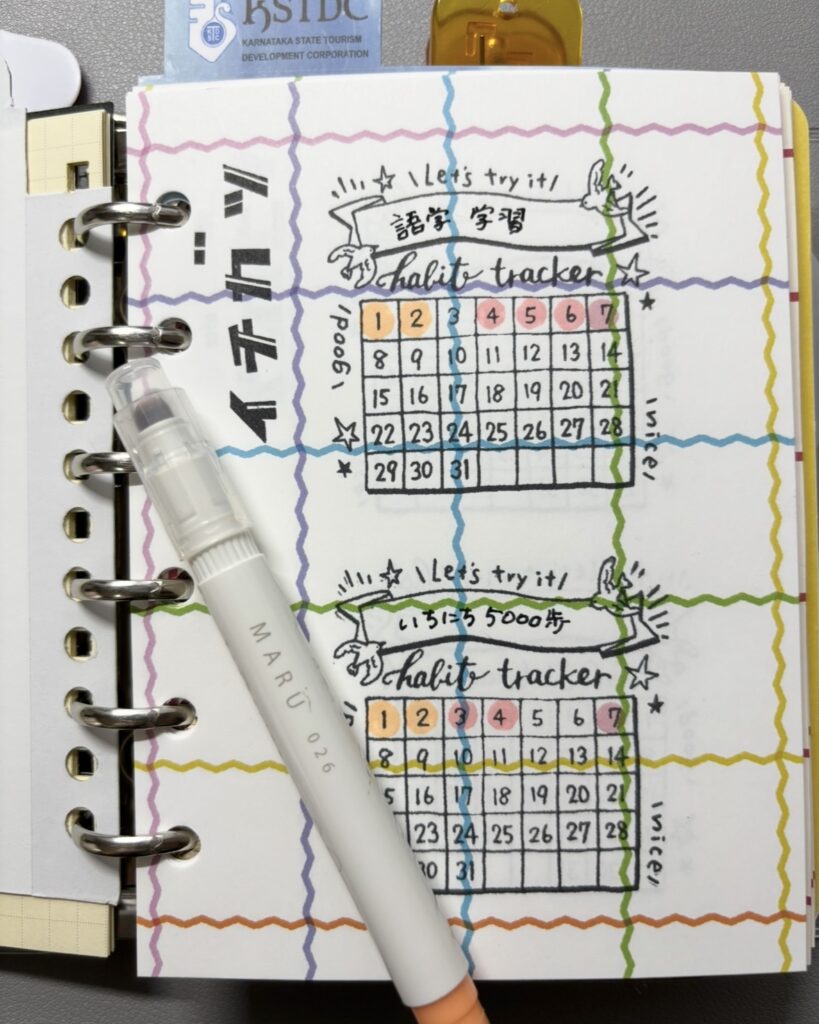 KSTDC
KARNATAKA STATE TOURISM
DEVELOPMENT CORPORATION
イチガツ
\Let's try it/
語学 学習
habit tracker
\good/
1 2 3 4 5 6 7
8 9 10 11 12 13 14
15 16 17 18 19 20 21
22 23 24 25 26 27 28
29 30 31
\nice/
\Let's try it/
いちにち 5000歩
habit tracker
1 2 3 4 5 6 7
8 9 10 11 12 13 14
5 16 17 18 19 20 21
23 24 25 26 27 28
30 31
\nice/
MARU 026